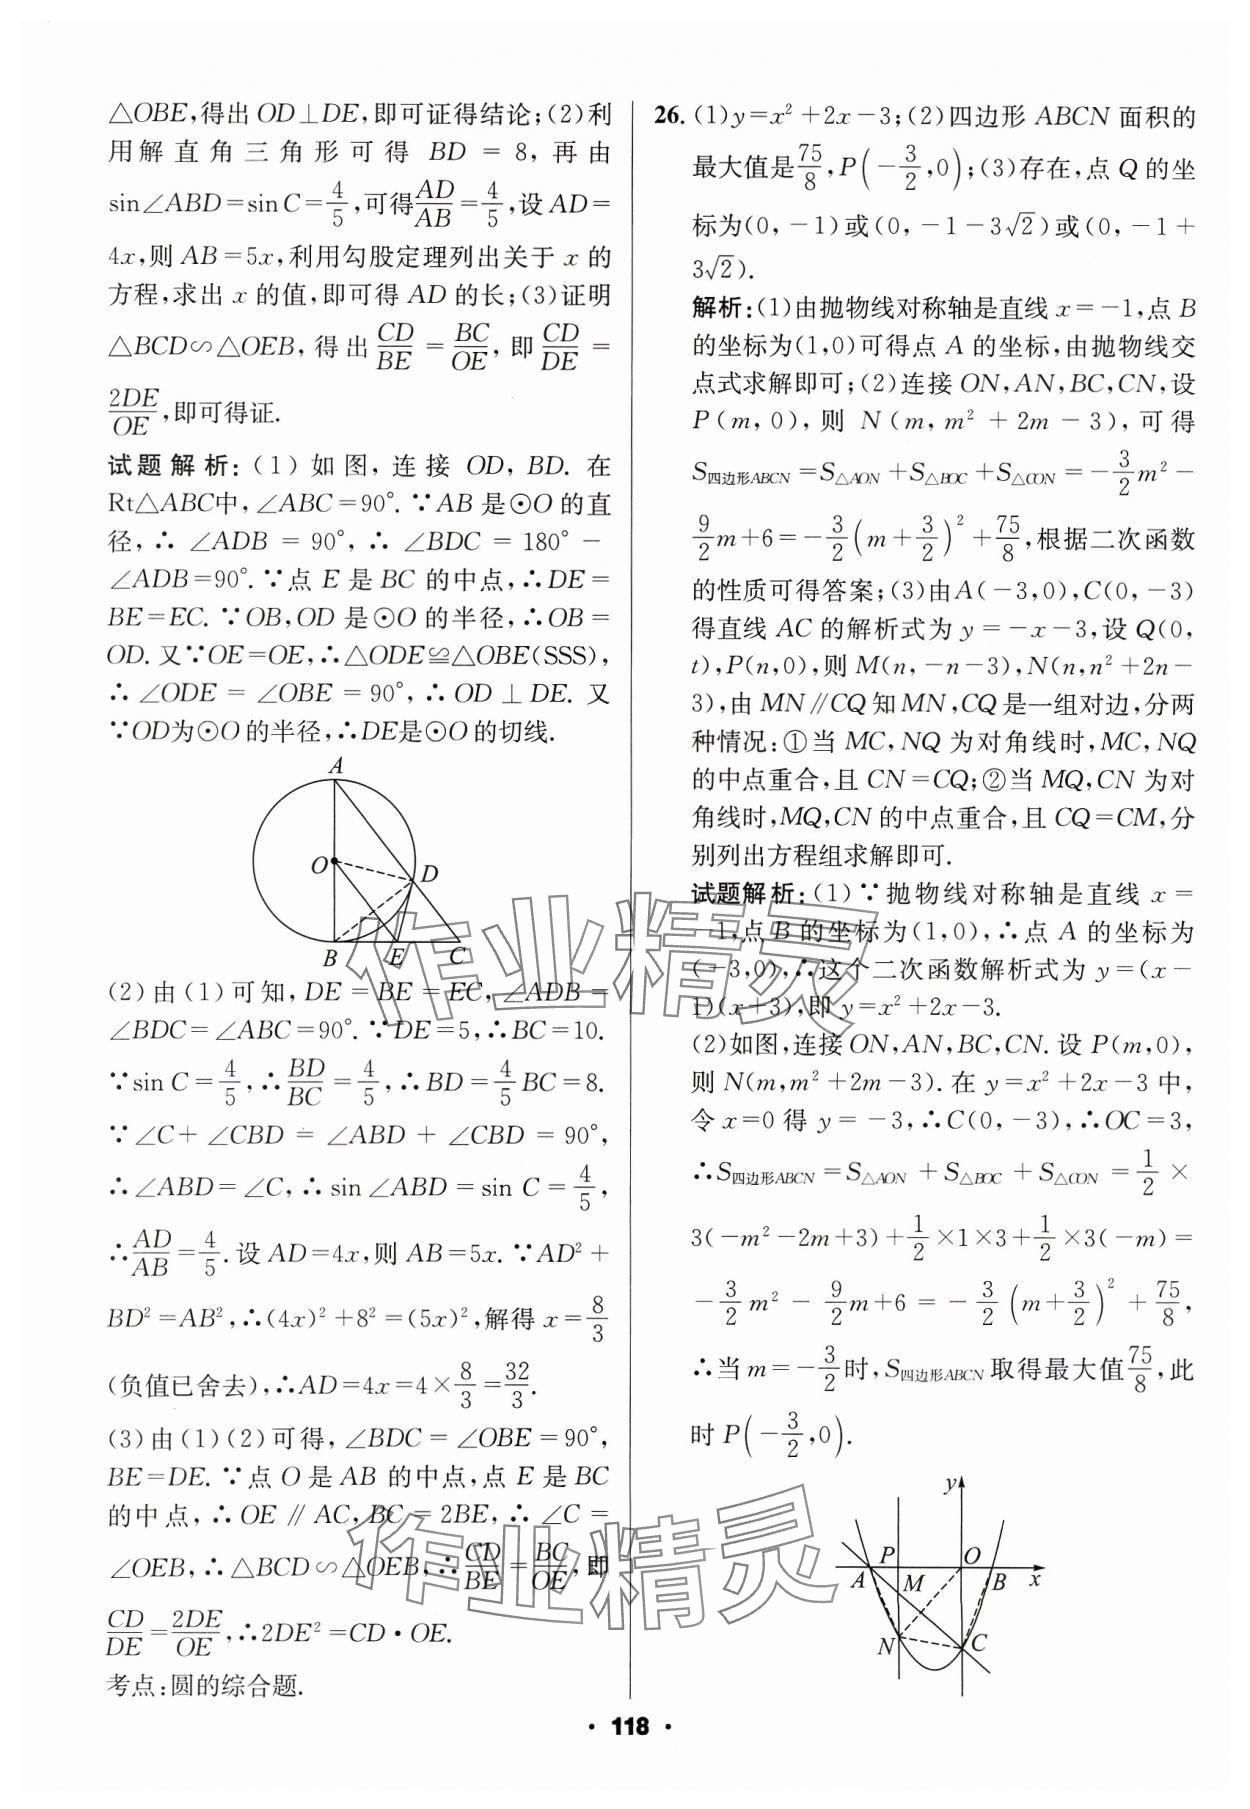 △OBE,得出OD⊥DE,即可证得结论;(2)利
用解直角三角形可得 BD=8,再由
sin∠ABD=sin C=4/5,可得AD/AB=4/5,设AD=
4x,则AB=5x,利用勾股定理列出关于x的
方程,求出x的值,即可得AD的长;(3)证明
△BCD∽△OEB,得出CD/BE=BC/OE,即CD/DE=
2DE/OE,即可得证.
试题解析:(1)如图,连接 OD,BD.在
Rt△ABC中,∠ABC=90°.∵AB是⊙O的直
径,∴∠ADB=90°,∴∠BDC=180°-
∠ADB=90°.∵点E是BC的中点,∴DE=
BE=EC.∵OB,OD是⊙O的半径,∴OB=
OD.又∵OE=OE,∴△ODE≌△OBE(SSS),
∴∠ODE=∠OBE=90°,∴OD⊥DE.又
∵OD为⊙O的半径,∴DE是⊙O的切线.
A
O
D
B E C
(2)由(1)可知,DE=BE=EC,∠ADB=
∠BDC=∠ABC=90°.∵DE=5,∴BC=10.
∵sin C=4/5,∴BD/BC=4/5,∴BD=4/5BC=8.
∵∠C+∠CBD=∠ABD+∠CBD=90°,
∴∠ABD=∠C,∴sin∠ABD=sin C=4/5,
∴AD/AB=4/5.设AD=4x,则AB=5x.∵AD²+
BD²=AB²,∴(4x)²+8²=(5x)²,解得x=8/3
(负值已舍去),∴AD=4x=4×8/3=32/3.
(3)由(1)(2)可得,∠BDC=∠OBE=90°,
BE=DE.∵点O是AB的中点,点E是BC
的中点,∴OE∥AC,BC=2BE,∴∠C=
∠OEB,∴△BCD∽△OEB,∴CD/BE=BC/OE,即
CD/DE=2DE/OE,∴2DE²=CD·OE.
考点:圆的综合题.
26.(1)y=x²+2x-3;(2)四边形ABCN面积的
最大值是75/8,P(-3/2,0);(3)存在,点Q的坐
标为(0,-1)或(0,-1-3√2)或(0,-1+
3√2).
解析:(1)由抛物线对称轴是直线x=-1,点B
的坐标为(1,0)可得点A的坐标,由抛物线交
点式求解即可;(2)连接ON,AN,BC,CN,设
P(m,0),则 N(m,m²+2m-3),可得
S四边形ABCN=S△AON+S△BOC+S△CON=-3/2m²-
9/2m+6=-3/2(m+3/2)²+75/8,根据二次函数
的性质可得答案;(3)由A(-3,0),C(0,-3)
得直线AC的解析式为y=-x-3,设Q(0,
t),P(n,0),则M(n,-n-3),N(n,n²+2n-
3),由MN∥CQ知MN,CQ是一组对边,分两
种情况:①当MC,NQ为对角线时,MC,NQ
的中点重合,且CN=CQ;②当MQ,CN为对
角线时,MQ,CN的中点重合,且CQ=CM,分
别列出方程组求解即可.
试题解析:(1)∵抛物线对称轴是直线x=
-1,点B的坐标为(1,0),∴点A的坐标为
(-3,0),∴这个二次函数解析式为y=(x-
1)(x+3),即y=x²+2x-3.
(2)如图,连接ON,AN,BC,CN.设P(m,0),
则N(m,m²+2m-3).在y=x²+2x-3中,
令x=0得y=-3,∴C(0,-3),∴OC=3,
∴S四边形ABCN=S△AON+S△BOC+S△CON=1/2×
3(-m²-2m+3)+1/2×1×3+1/2×3(-m)=
-3/2m²-9/2m+6=-3/2(m+3/2)²+75/8,
∴当m=-3/2时,S四边形ABCN取得最大值75/8,此
时P(-3/2,0).
y
P O
A M B x
N C
·118·
作业精灵
作业精灵